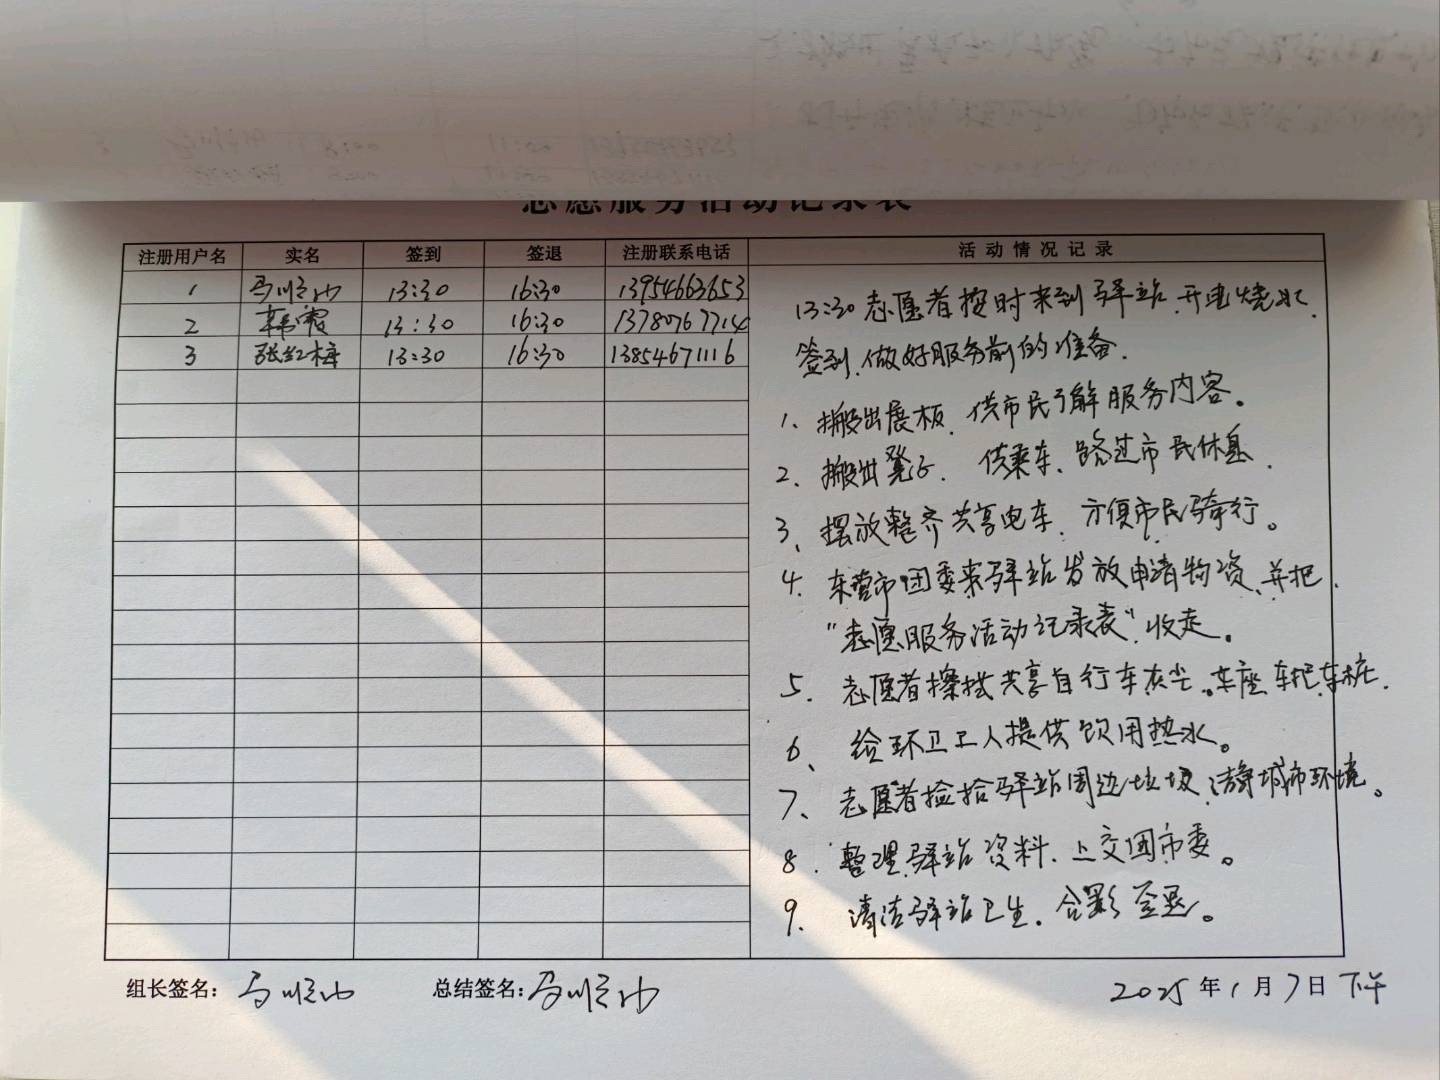 志愿服务活动记录表
注册用户名 实名 签到 签退 注册联系电话 活动情况记录
1 马顺山 13:30 16:30 13954663653
2 韩霞 13:30 16:30 13780767714
3 张红梅 13:30 16:30 13854671116
13:30志愿者按时来到驿站.开电烧水.
签到.做好服务前的准备.
1、搬出展板.供市民了解服务内容。
2、搬出凳子.供乘车、路过市民休息.
3、摆放整齐共享电车.方便市民骑行。
4.东营市团委来驿站发放申请物资、并把.
"志愿服务活动记录表".收走。
5.志愿者擦拭共享自行车灰尘。车座.车把.车桩.
6、给环卫工人提供饮用热水。
7、志愿者捡拾驿站周边垃圾.清静城市环境。
8.整理驿站资料.上交团市委。
9.清洁驿站卫生.合影签退。
组长签名: 马顺山 总结签名: 马顺山 2025年1月7日 下午